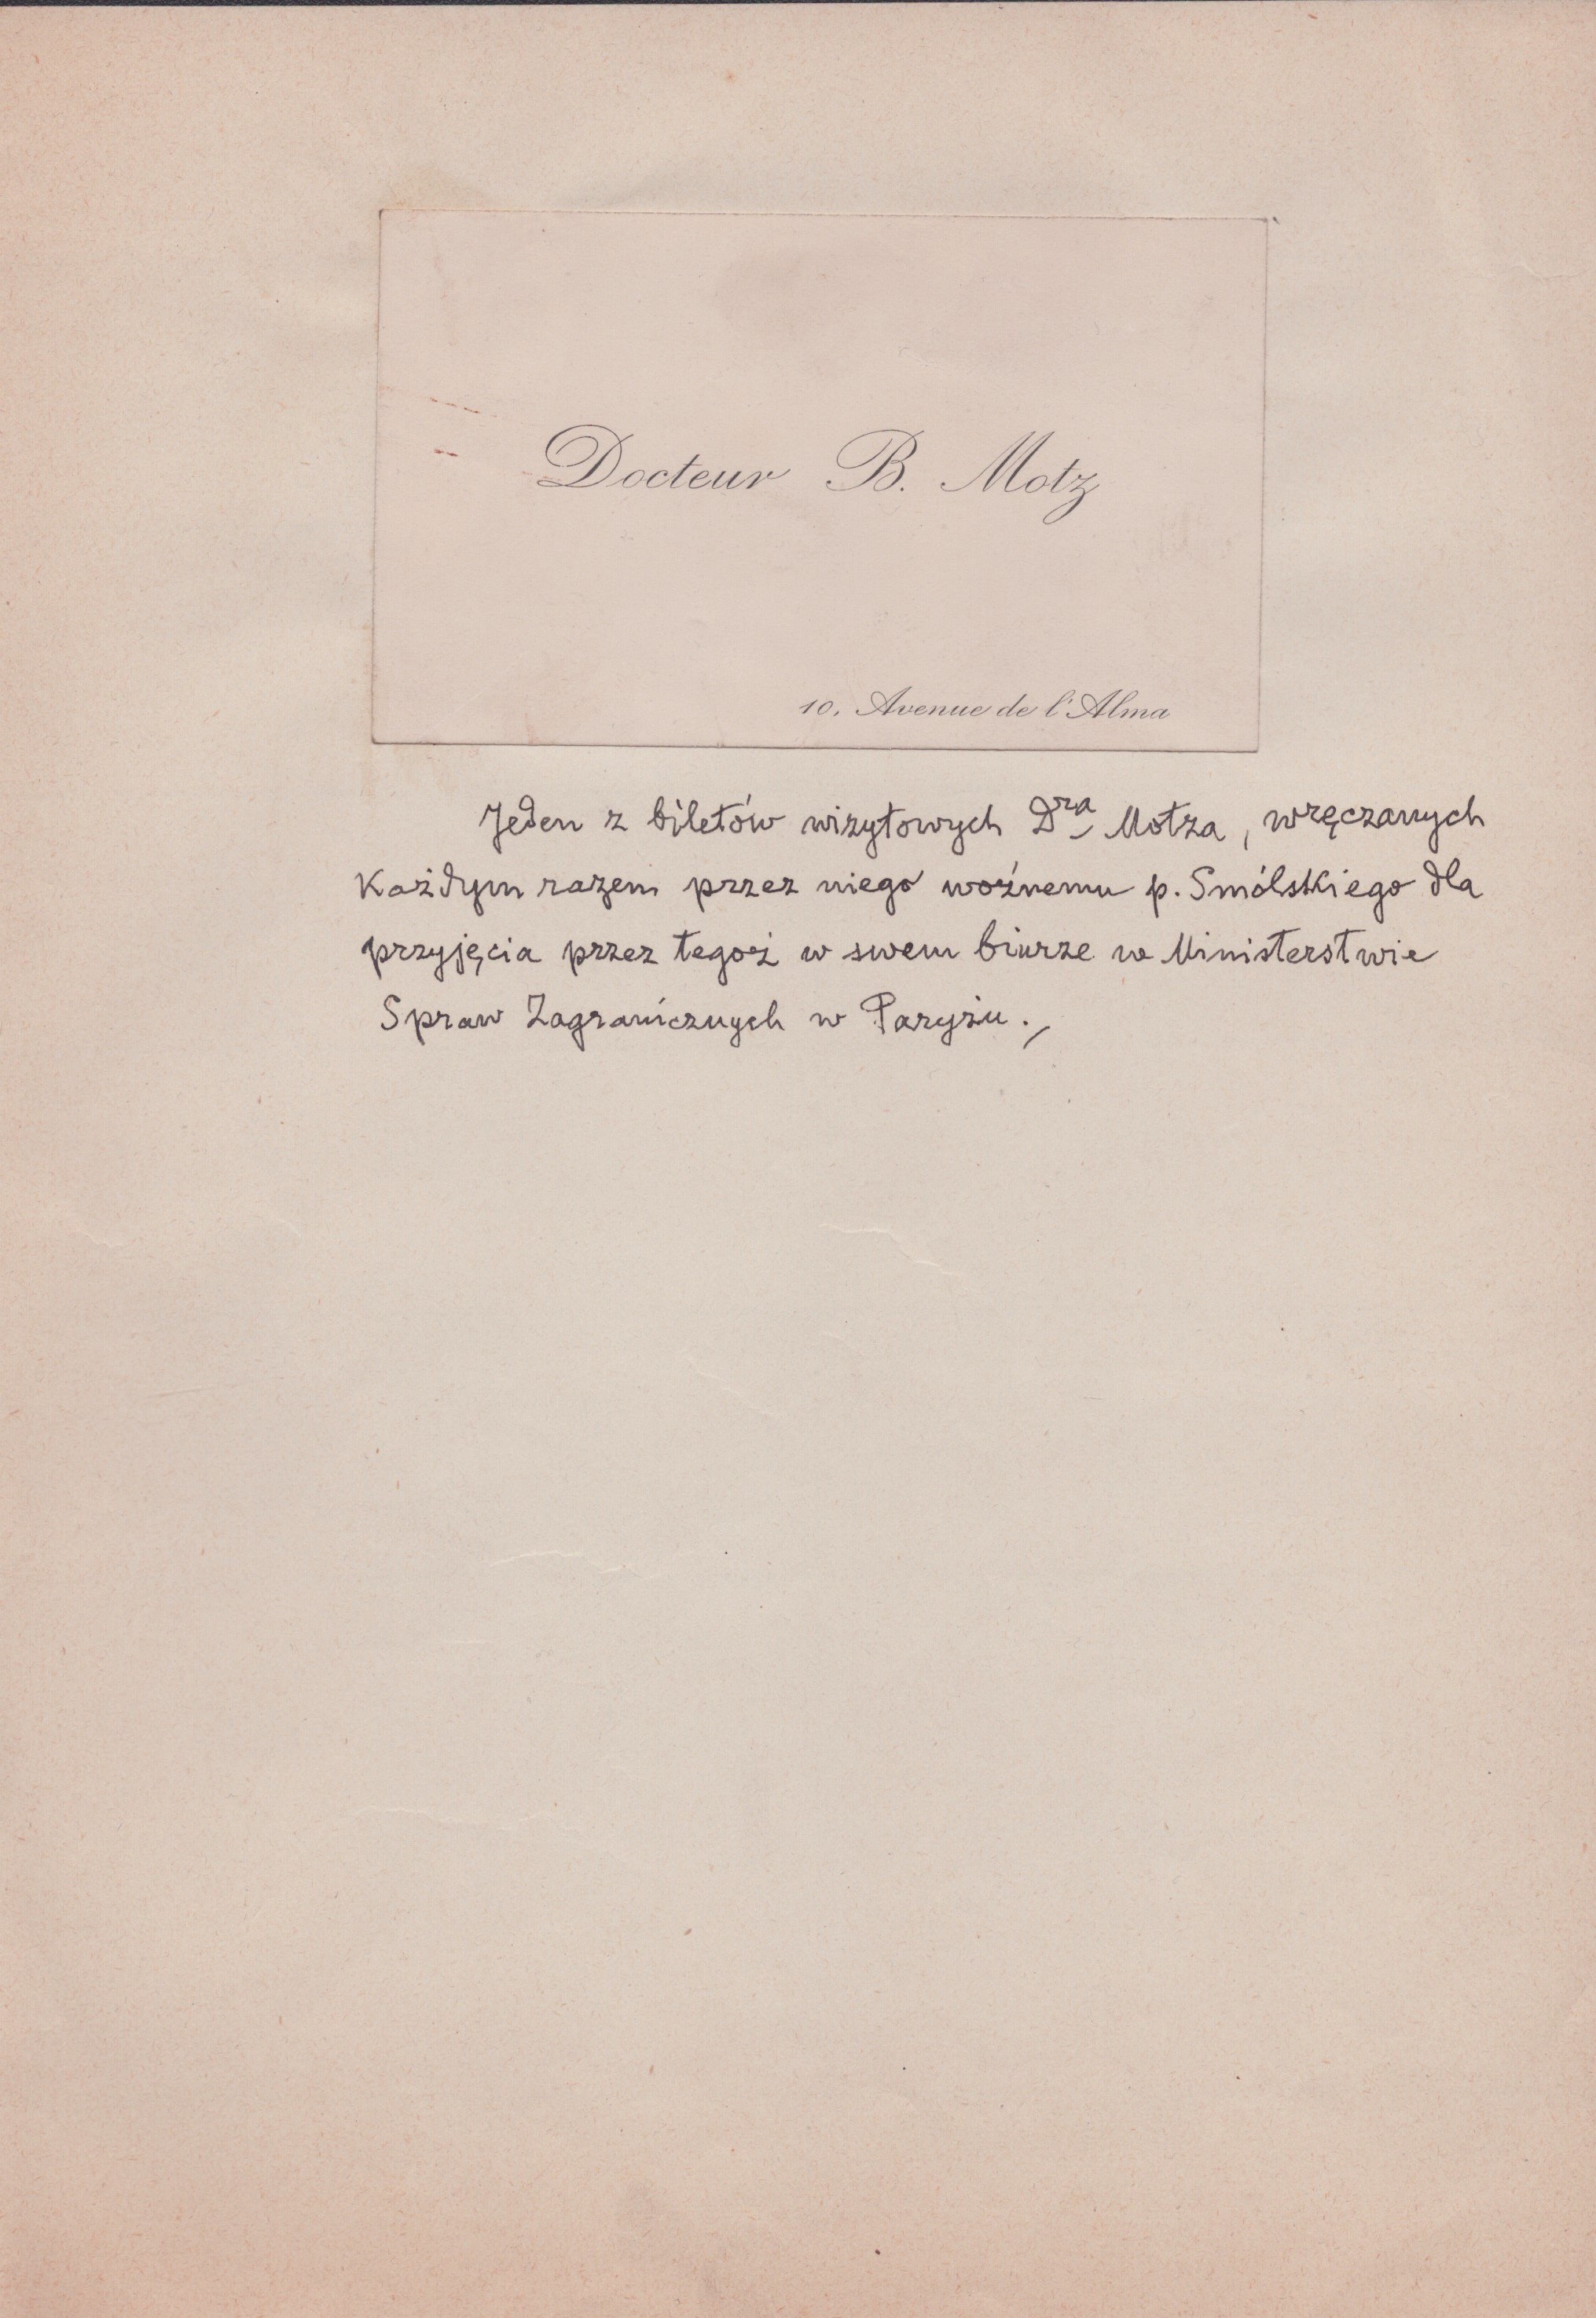 Docteur B. Motz
10, Avenue de l'Alma
Jeden z biletów wizytowych Dra Motza, wręczanych
każdym razem przez niego woźnemu p. Smólskiego dla
przyjęcia przez tegoż w swem biurze w Ministerstwie
Spraw Zagranicznych w Paryżu.